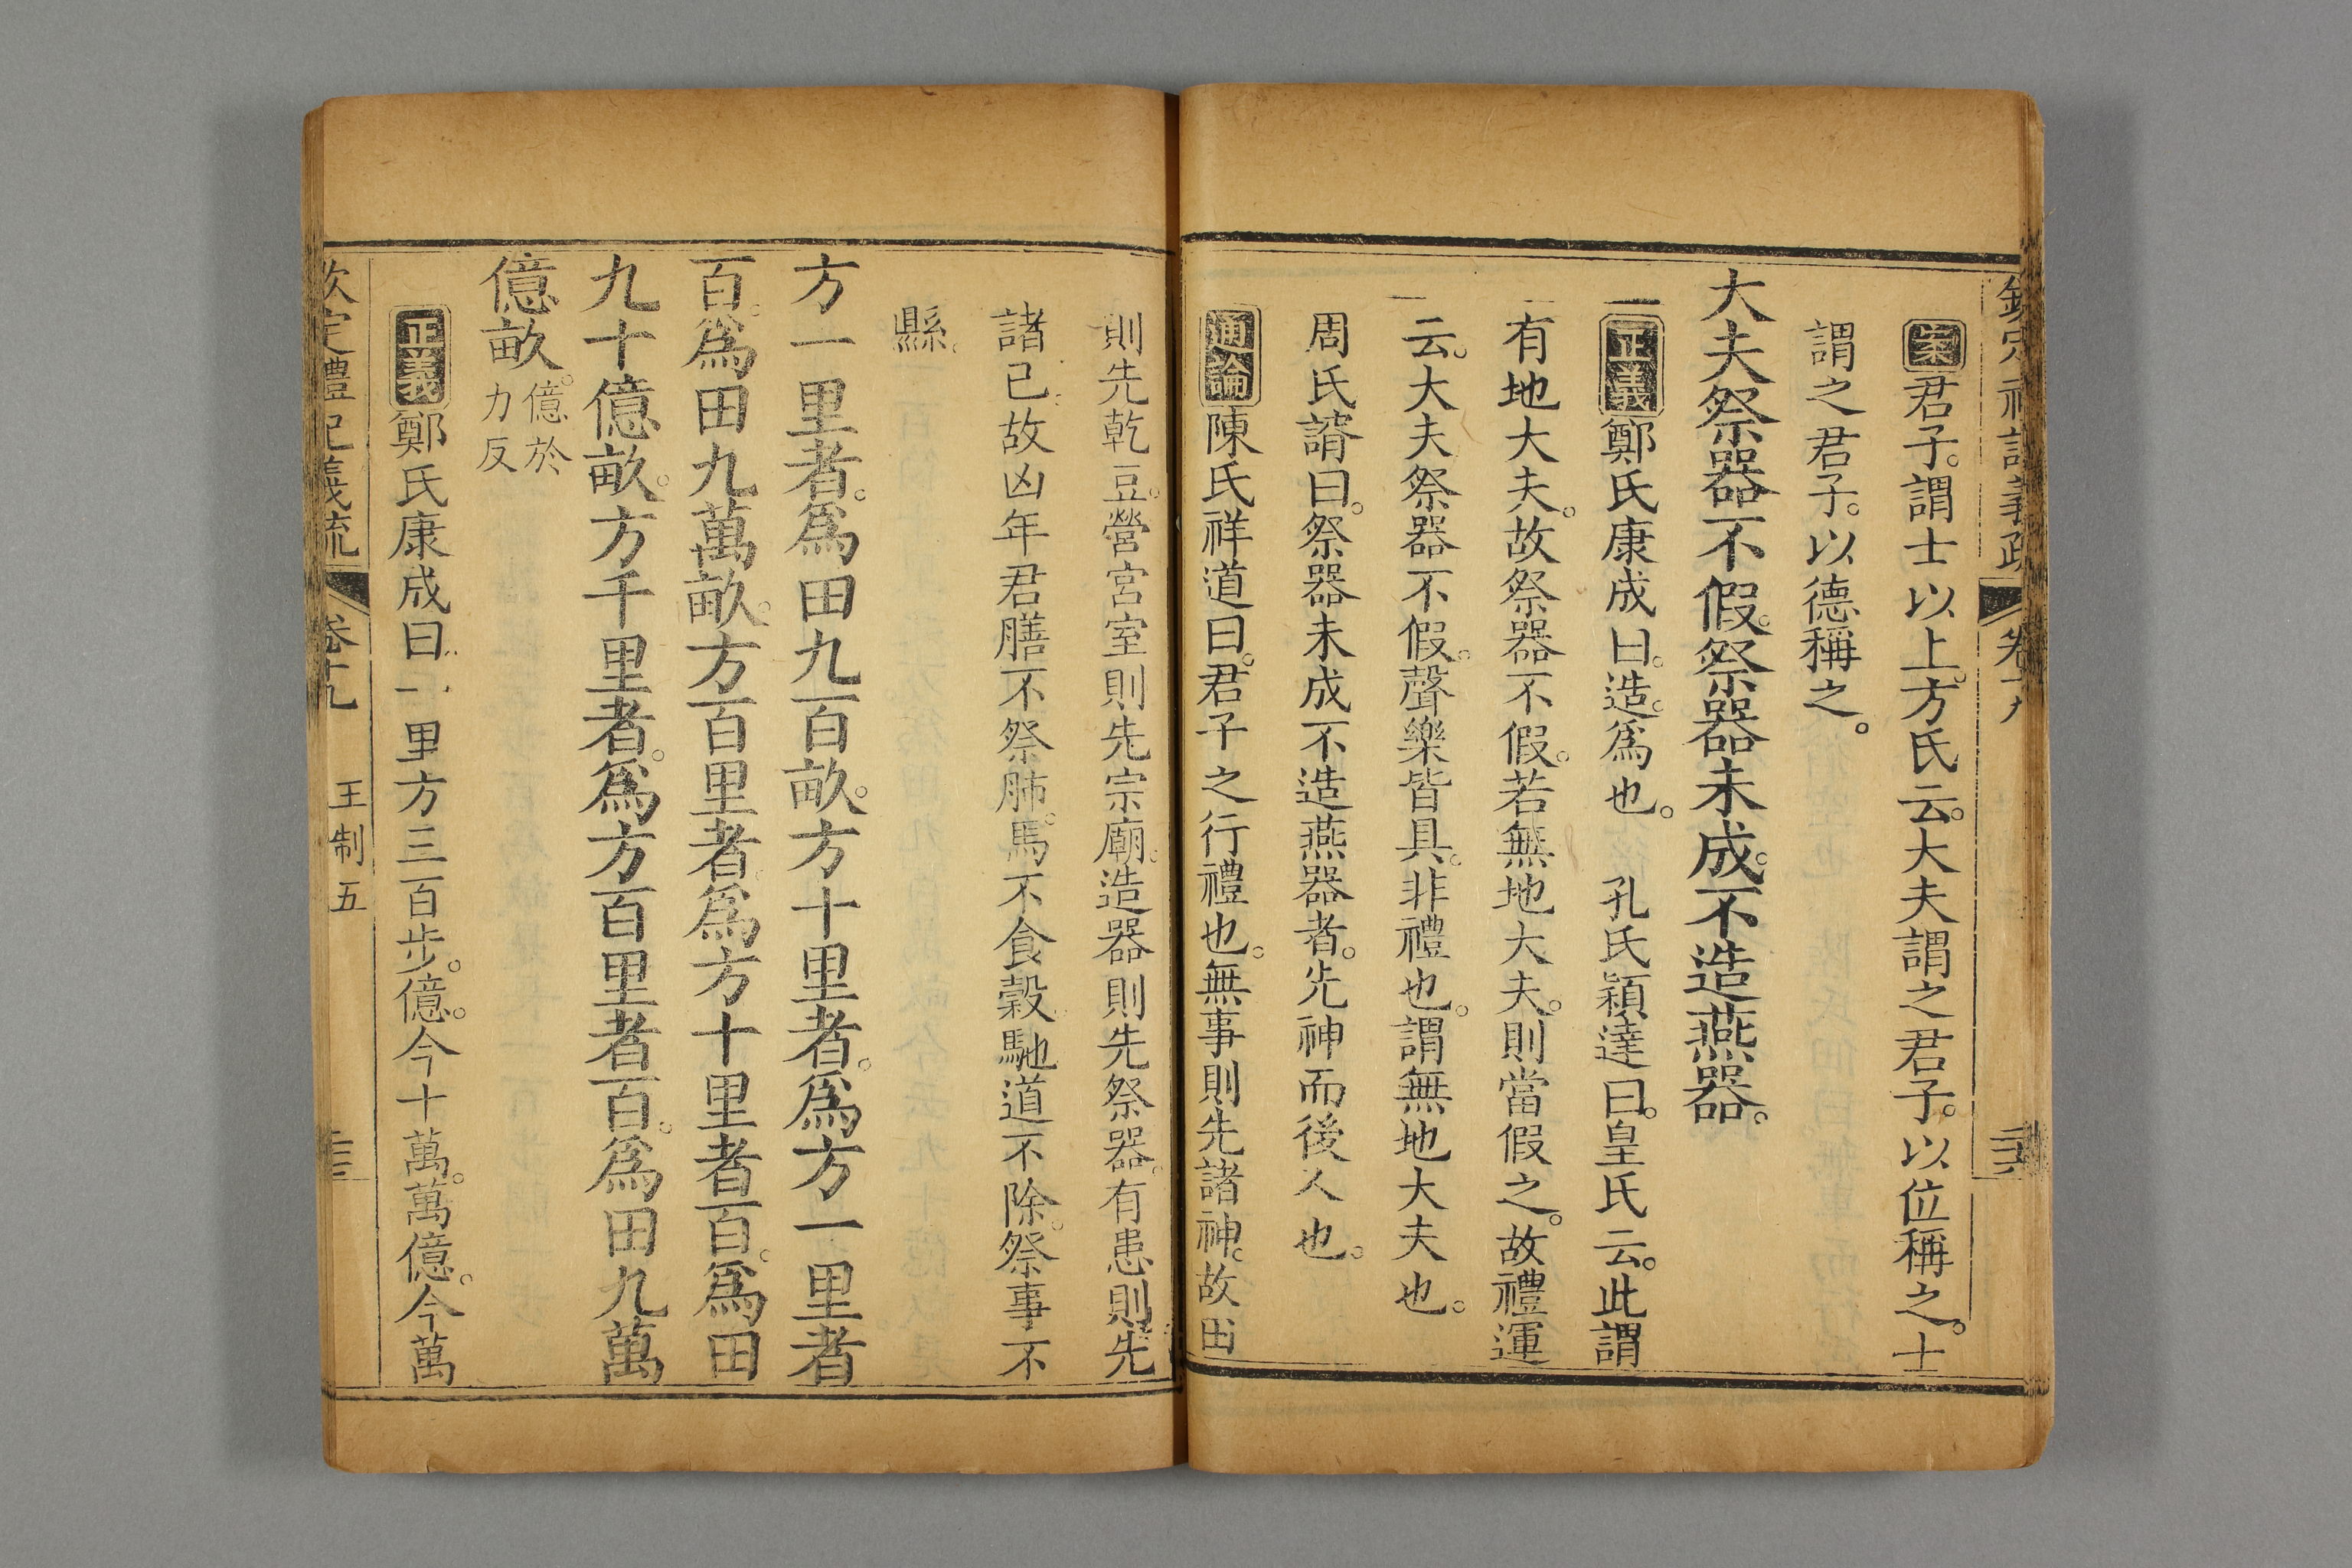 欽定禮記義疏 卷十九
案君子。謂士以上。方氏云。大夫謂之君子。以位稱之。士
謂之君子。以德稱之。
大夫祭器不假。祭器未成。不造燕器。
正義鄭氏康成曰。造。爲也。 孔氏穎達曰。皇氏云。此謂
有地大夫。故祭器不假。若無地大夫。則當假之。故禮運
云。大夫祭器不假。聲樂皆具。非禮也。謂無地大夫也。
周氏諝曰。祭器未成不造燕器者。先神而後人也。
通論陳氏祥道曰。君子之行禮也。無事則先諸神。故田
則先乾豆。營宮室則先宗廟。造器則先祭器。有患則先
諸已。故凶年君膳不祭肺。馬不食穀。馳道不除。祭事不
縣。
方一里者。爲田九百畝。方十里者。爲方一里者
百。爲田九萬畝。方百里者。爲方十里者百。爲田
九十億畝。方千里者。爲方百里者百。爲田九萬
億畝。億於力反
正義鄭氏康成曰。一里方三百步。億。今十萬。萬億。今萬
欽定禮記義疏 卷十九 王制五